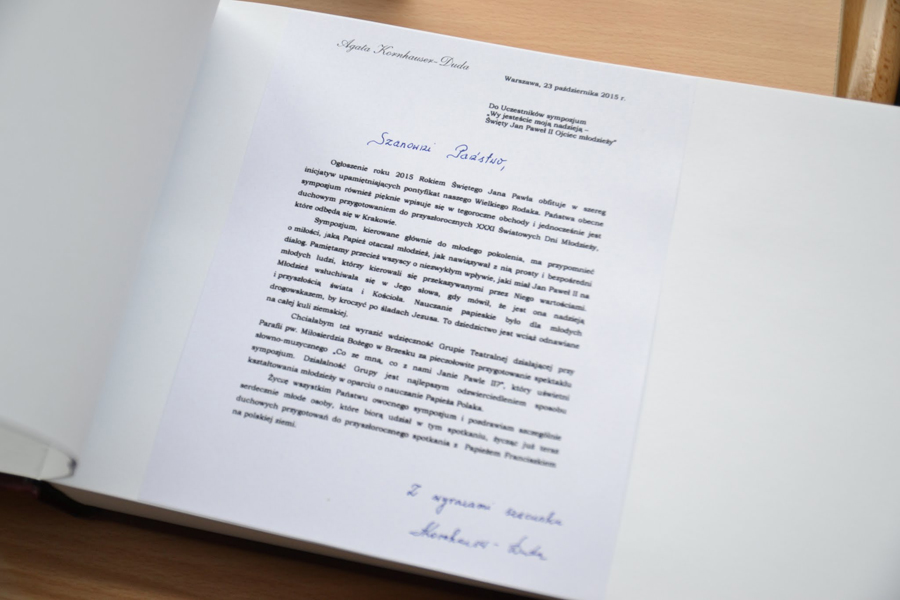 Agata Kornhauser-Duda
Warszawa, 23 października 2015 r.
Do Uczestników sympozjum
„Wy jesteście moją nadzieją –
Święty Jan Paweł II Ojciec młodzieży"
Szanowni Państwo,
Ogłoszenie roku 2015 Rokiem Świętego Jana Pawła obfituje w szereg
inicjatyw upamiętniających pontyfikat naszego Wielkiego Rodaka. Państwa obecne
sympozjum również pięknie wpisuje się w tegoroczne obchody i jednocześnie jest
duchowym przygotowaniem do przyszłorocznych XXXI Światowych Dni Młodzieży,
które odbędą się w Krakowie.
Sympozjum, kierowane głównie do młodego pokolenia, ma przypomnieć
o miłości, jaką Papież otaczał młodzież, jak nawiązywał z nią prosty i bezpośredni
dialog. Pamiętamy przecież wszyscy o niezwykłym wpływie, jaki miał Jan Paweł II na
młodych ludzi, którzy kierowali się przekazywanymi przez Niego wartościami.
Młodzież wsłuchiwała się w Jego słowa, gdy mówił, że jest ona nadzieją
i przyszłością świata i Kościoła. Nauczanie papieskie było dla młodych
drogowskazem, by kroczyć po śladach Jezusa. To dziedzictwo jest wciąż odnawiane
na całej kuli ziemskiej.
Chciałabym też wyrazić wdzięczność Grupie Teatralnej działającej przy
Parafii pw. Miłosierdzia Bożego w Brzesku za pieczołowite przygotowanie spektaklu
słowno-muzycznego „Co ze mną, co z nami Janie Pawle II?", który uświetni
sympozjum. Działalność Grupy jest najlepszym odzwierciedleniem sposobu
kształtowania młodzieży w oparciu o nauczanie Papieża Polaka.
Życzę wszystkim Państwu owocnego sympozjum i pozdrawiam szczególnie
serdecznie młode osoby, które biorą udział w tym spotkaniu, życząc już teraz
duchowych przygotowań do przyszłorocznego spotkania z Papieżem Franciszkiem
na polskiej ziemi.
Z wyrazami szacunku
Kornhauser-Duda